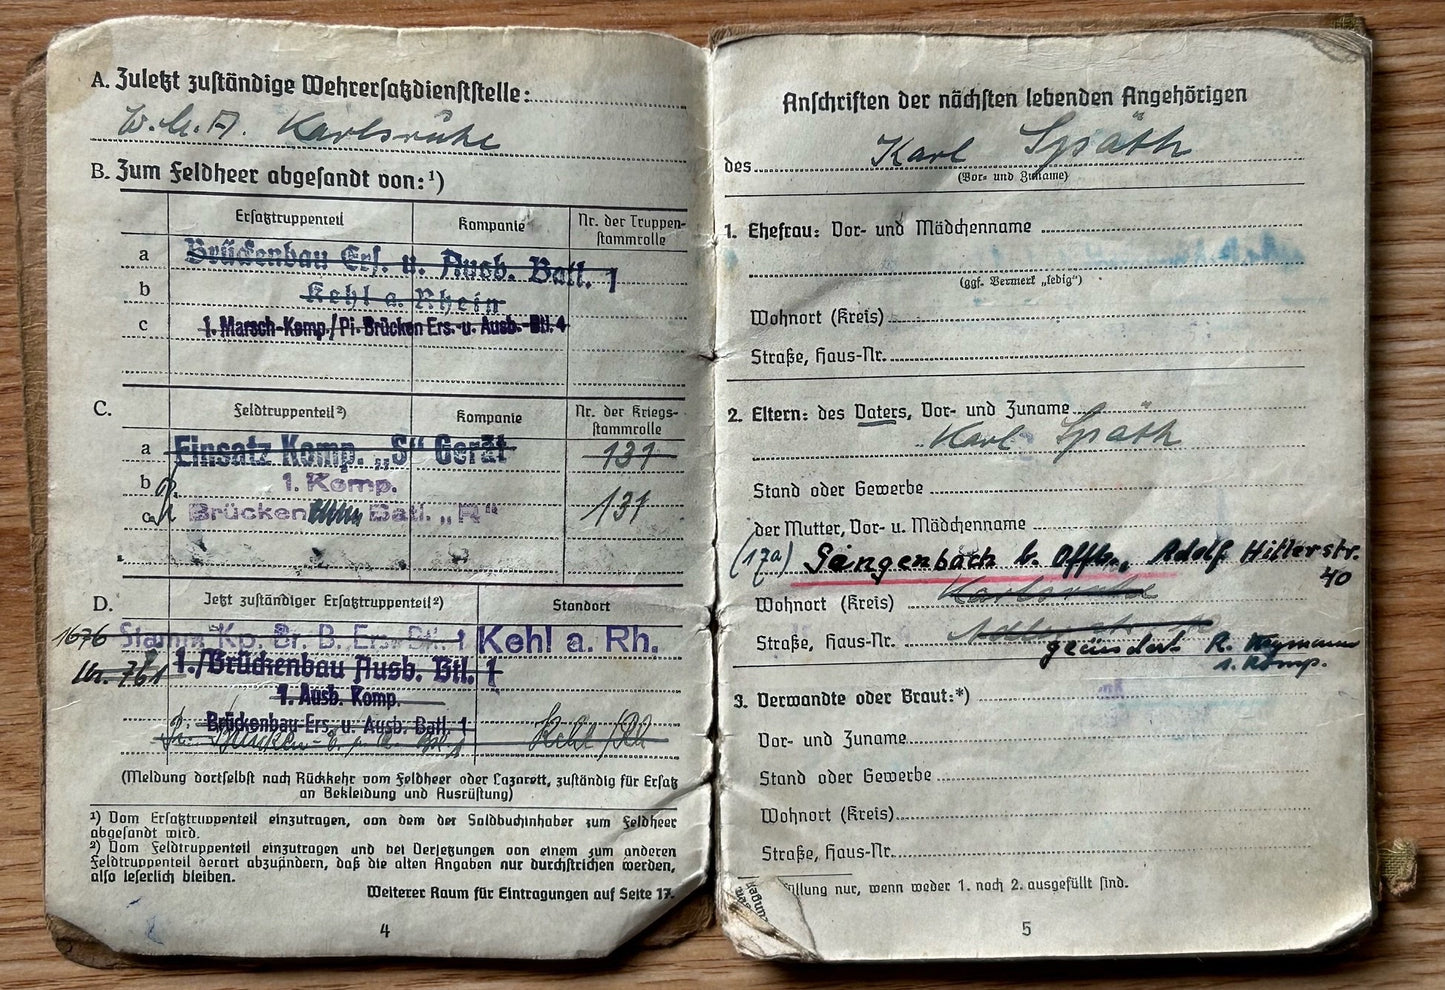 A. Zuletzt zuständige Wehrersatzdienststelle:
Karlsruhe
B. Zum Feldheer abgesandt von: ¹)
Ersatztruppenteil Kompanie Nr. der Truppen-
stammrolle
a Brückenbau Ers. u. Ausb. Batl. 1
b Kehl a. Rhein
c 1. Marsch-Komp./Pi.-Brücken Ers.-u. Ausb.-Btl. 4
C. Feldtruppenteil ²) Kompanie Nr. der Kriegs-
stammrolle
a Einsatz Komp. „S" Gerät 131
b 1. Komp.
c Brücken Batl. „R" 131
D. Jetzt zuständiger Ersatztruppenteil ²) Standort
1676 Stamm Kp. Br. B. Ers. Btl. 1 Kehl a. Rh.
1./Brückenbau Ausb. Btl. 1
1. Ausb. Komp.
Brückenbau-Ers. u. Ausb. Batl. 1
Kehl /Rh
(Meldung dortselbst nach Rückkehr vom Feldheer oder Lazarett, zuständig für Ersatz
an Bekleidung und Ausrüstung)
¹) Vom Ersatztruppenteil einzutragen, von dem der Soldbuchinhaber zum Feldheer
abgesandt wird.
²) Vom Feldtruppenteil einzutragen und bei Versetzungen von einem zum anderen
Feldtruppenteil derart abzuändern, daß die alten Angaben nur durchstrichen werden,
also leserlich bleiben.
Weiterer Raum für Eintragungen auf Seite 17.
4
Anschriften der nächsten lebenden Angehörigen
des Karl Späth
(Vor- und Zuname)
1. Ehefrau: Vor- und Mädchenname
(ggf. Vermerk „ledig")
Wohnort (Kreis)
Straße, Haus-Nr.
2. Eltern: des Vaters, Vor- und Zuname
Karl Späth
Stand oder Gewerbe
der Mutter, Vor- u. Mädchenname
(17a) Gengenbach b. Offb., Adolf Hitlerstr.
40
Wohnort (Kreis) Karlsruhe
Straße, Haus-Nr.
geändert R. Weymann
1. Komp.
3. Verwandte oder Braut:*)
Vor- und Zuname
Stand oder Gewerbe
Wohnort (Kreis)
Straße, Haus-Nr.
füllung nur, wenn weder 1. noch 2. ausgefüllt sind.
5